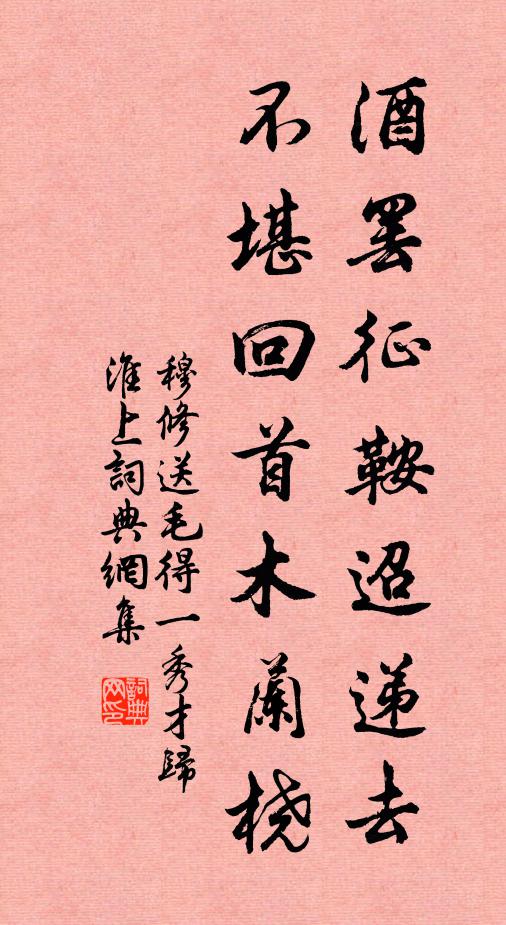 酒罢征鞍迢递去
不堪回首木蘭桡
穆修送毛得一秀才歸
淮上詞典網集
詞典网印